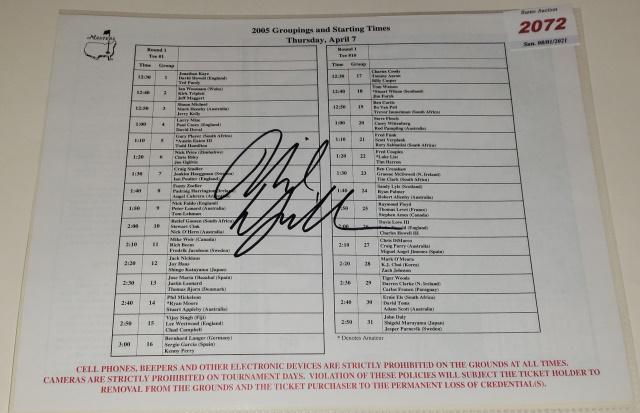 MASTERS
2005 Groupings and Starting Times
Thursday, April 7
2072
Sun. 08/01/2021
Round 1
Tee #1
Time Group
12:30 1 Jonathan Kaye
David Howell (England)
Ted Purdy
12:40 2 Ian Woosnam (Wales)
Kirk Triplett
Jeff Maggert
12:50 3 Shaun Micheel
Mark Hensby (Australia)
Jerry Kelly
1:00 4 Larry Mize
Paul Casey (England)
David Duval
1:10 5 Gary Player (South Africa)
*Austin Eaton III
Todd Hamilton
1:20 6 Nick Price (Zimbabwe)
Chris Riley
Joe Ogilvie
1:30 7 Craig Stadler
Joakim Haeggman
Ian Poulter (England)
1:40 8 Fuzzy Zoeller
Padraig Harrington
Angel Cabrera
1:50 9 Nick Faldo (England)
Peter Lonard (Australia)
Tom Lehman
2:00 10 Retief Goosen (South Africa)
Stewart Cink
Nick O'Hern (Australia)
2:10 11 Mike Weir (Canada)
Rich Beem
Fredrik Jacobson (Sweden)
2:20 12 Jack Nicklaus
Jay Haas
Shingo Katayama (Japan)
2:30 13 Jose Maria Olazabal (Spain)
Justin Leonard
Thomas Bjorn (Denmark)
2:40 14 Phil Mickelson
*Ryan Moore
Stuart Appleby (Australia)
2:50 15 Vijay Singh (Fiji)
Lee Westwood (England)
Chad Campbell
3:00 16 Bernhard Langer (Germany)
Sergio Garcia (Spain)
Kenny Perry
Round 1
Tee #10
Time Group
12:30 17 Charles Coody
Tommy Aaron
Billy Casper
12:40 18 Tom Watson
*Stuart Wilson (Scotland)
Jim Furyk
12:50 19 Ben Curtis
Bo Van Pelt
Trevor Immelman (South Africa)
1:00 20 Steve Flesch
Casey Wittenberg
Rod Pampling (Australia)
1:10 21 Fred Funk
Scott Verplank
Rory Sabbatini (South Africa)
1:20 22 Fred Couples
*Luke List
Tim Herron
1:30 23 Ben Crenshaw
Graeme McDowell (N. Ireland)
Tim Clark (South Africa)
1:40 24 Sandy Lyle (Scotland)
Ryan Palmer
Robert Allenby (Australia)
1:50 25 Raymond Floyd
Thomas Levet (France)
Stephen Ames (Canada)
2:00 26 Davis Love III
(England)
Charles Howell III
2:10 27 Chris DiMarco
Craig Parry (Australia)
Miguel Angel Jimenez (Spain)
2:20 28 Mark O'Meara
K.J. Choi (Korea)
Zach Johnson
2:30 29 Tiger Woods
Darren Clarke (N. Ireland)
Carlos Franco (Paraguay)
2:40 30 Ernie Els (South Africa)
David Toms
Adam Scott (Australia)
2:50 31 John Daly
Shigeki Maruyama (Japan)
Jesper Parnevik (Sweden)
* Denotes Amateur
CELL PHONES, BEEPERS AND OTHER ELECTRONIC DEVICES ARE STRICTLY PROHIBITED ON THE GROUNDS AT ALL TIMES.
CAMERAS ARE STRICTLY PROHIBITED ON TOURNAMENT DAYS. VIOLATION OF THESE POLICIES WILL SUBJECT THE TICKET HOLDER TO
REMOVAL FROM THE GROUNDS AND THE TICKET PURCHASER TO THE PERMANENT LOSS OF CREDENTIAL(S).